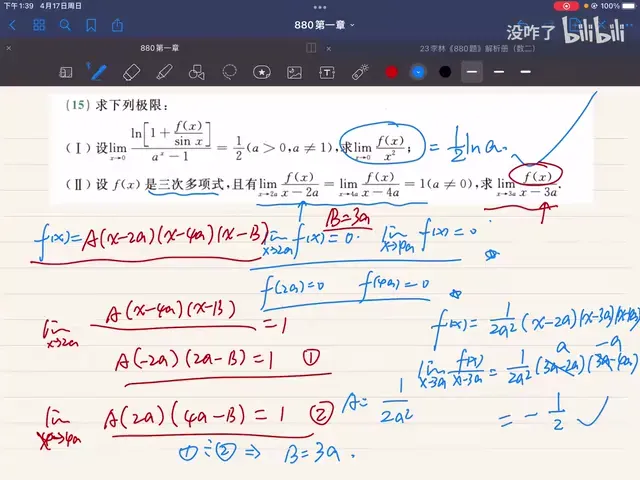 下午1:39 4月17日周日
100%
880第一章
没咋了 bilibili
880第一章
23李林《880题》解析册（数二）
(15) 求下列极限:
(Ⅰ) 设 lim_{x→0} ln[1 + f(x)/sin x] / (a^x − 1) = 1/2 (a > 0, a ≠ 1), 求 lim_{x→0} f(x)/x²; = 1/2 ln a.
(Ⅱ) 设 f(x) 是三次多项式, 且有 lim_{x→2a} f(x)/(x − 2a) = lim_{x→4a} f(x)/(x − 4a) = 1 (a ≠ 0), 求 lim_{x→3a} f(x)/(x − 3a).
B=3a
f(x)= A(x−2a)(x−4a)(x−B) lim_{x→2a} f(x)=0. lim_{x→4a} f(x)=0
f(2a)=0 f(4a)=0
lim_{x→2a} A(x−4a)(x−B) = 1
f(x)= 1/2a² (x−2a)(x−3a)(x−4a)
A(−2a)(2a−B)=1 ①
a −a
lim_{x→3a} f(x)/(x−3a) = 1/2a² (3a−2a)(3a−4a)
lim_{x→4a} A(2a)(4a−B)=1 ②
A= 1/2a²
= −1/2
①÷② ⇒ B=3a.